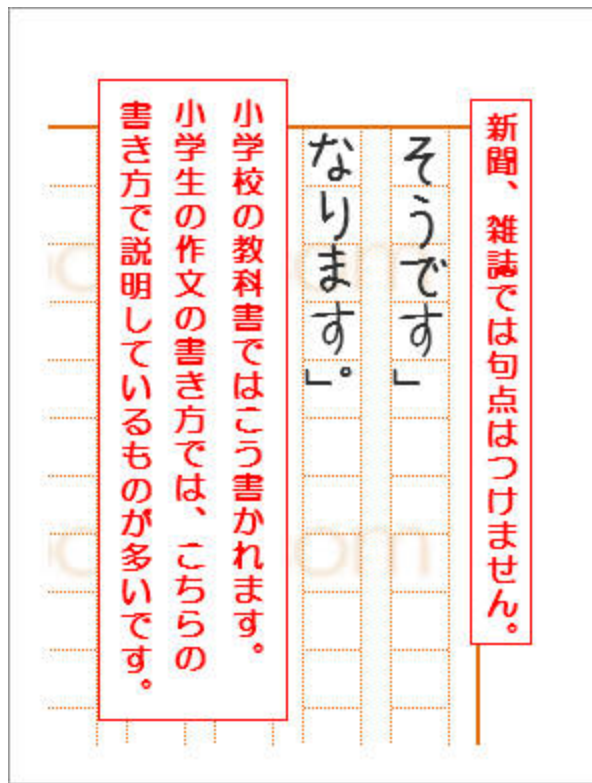 新聞、雑誌では句点はつけません。
そうです」
なります。」
小学校の教科書ではこう書かれます。
小学生の作文の書き方では、こちらの
書き方で説明しているものが多いです。